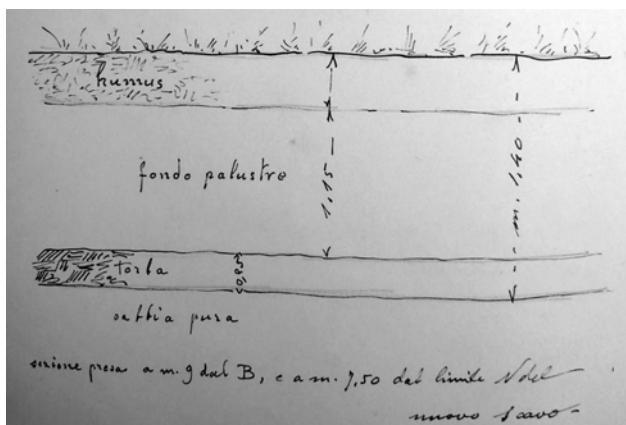 humus
fondo palustre
1,15
m. 1,40
torba
0,25
sabbia pura
sezione presa a m. 9 dal B, e a m. 7,50 dal limite N del
nuovo scavo -